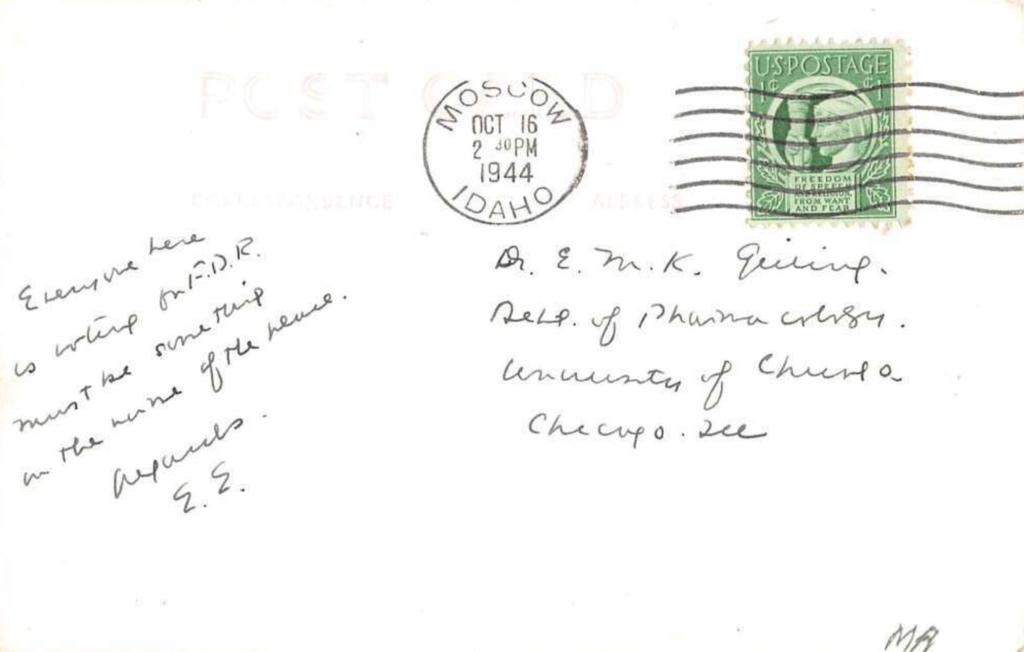 POST CARD
MOSCOW
OCT 16
2 30 PM
1944
IDAHO
U.S. POSTAGE
1¢ ¢1
FREEDOM
OF SPEECH
AND RELIGION
FROM WANT
AND FEAR
CORRESPONDENCE
ADDRESS
Everyone here
is voting for F.D.R.
must be something
in the name of the
Regards.
E. E.
Dr. E. M. K. Geiling.
Dept. of Pharmacology.
University of Chicago
Chicago. Ill
MA